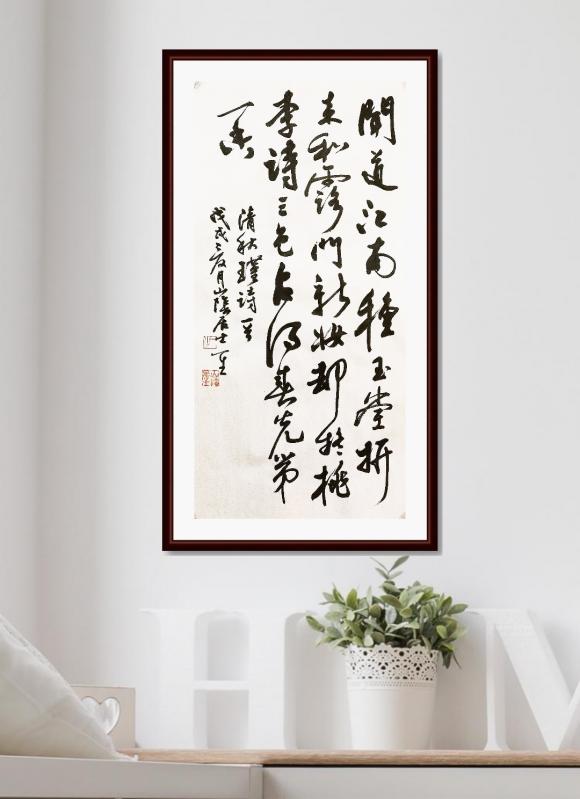 聞道江南種玉堂折
来和露鬥新妝却疑桃
李誇三色占得春光第
一香
清秋瑾詩一首
戊戌之夏月山陰居士
HOM